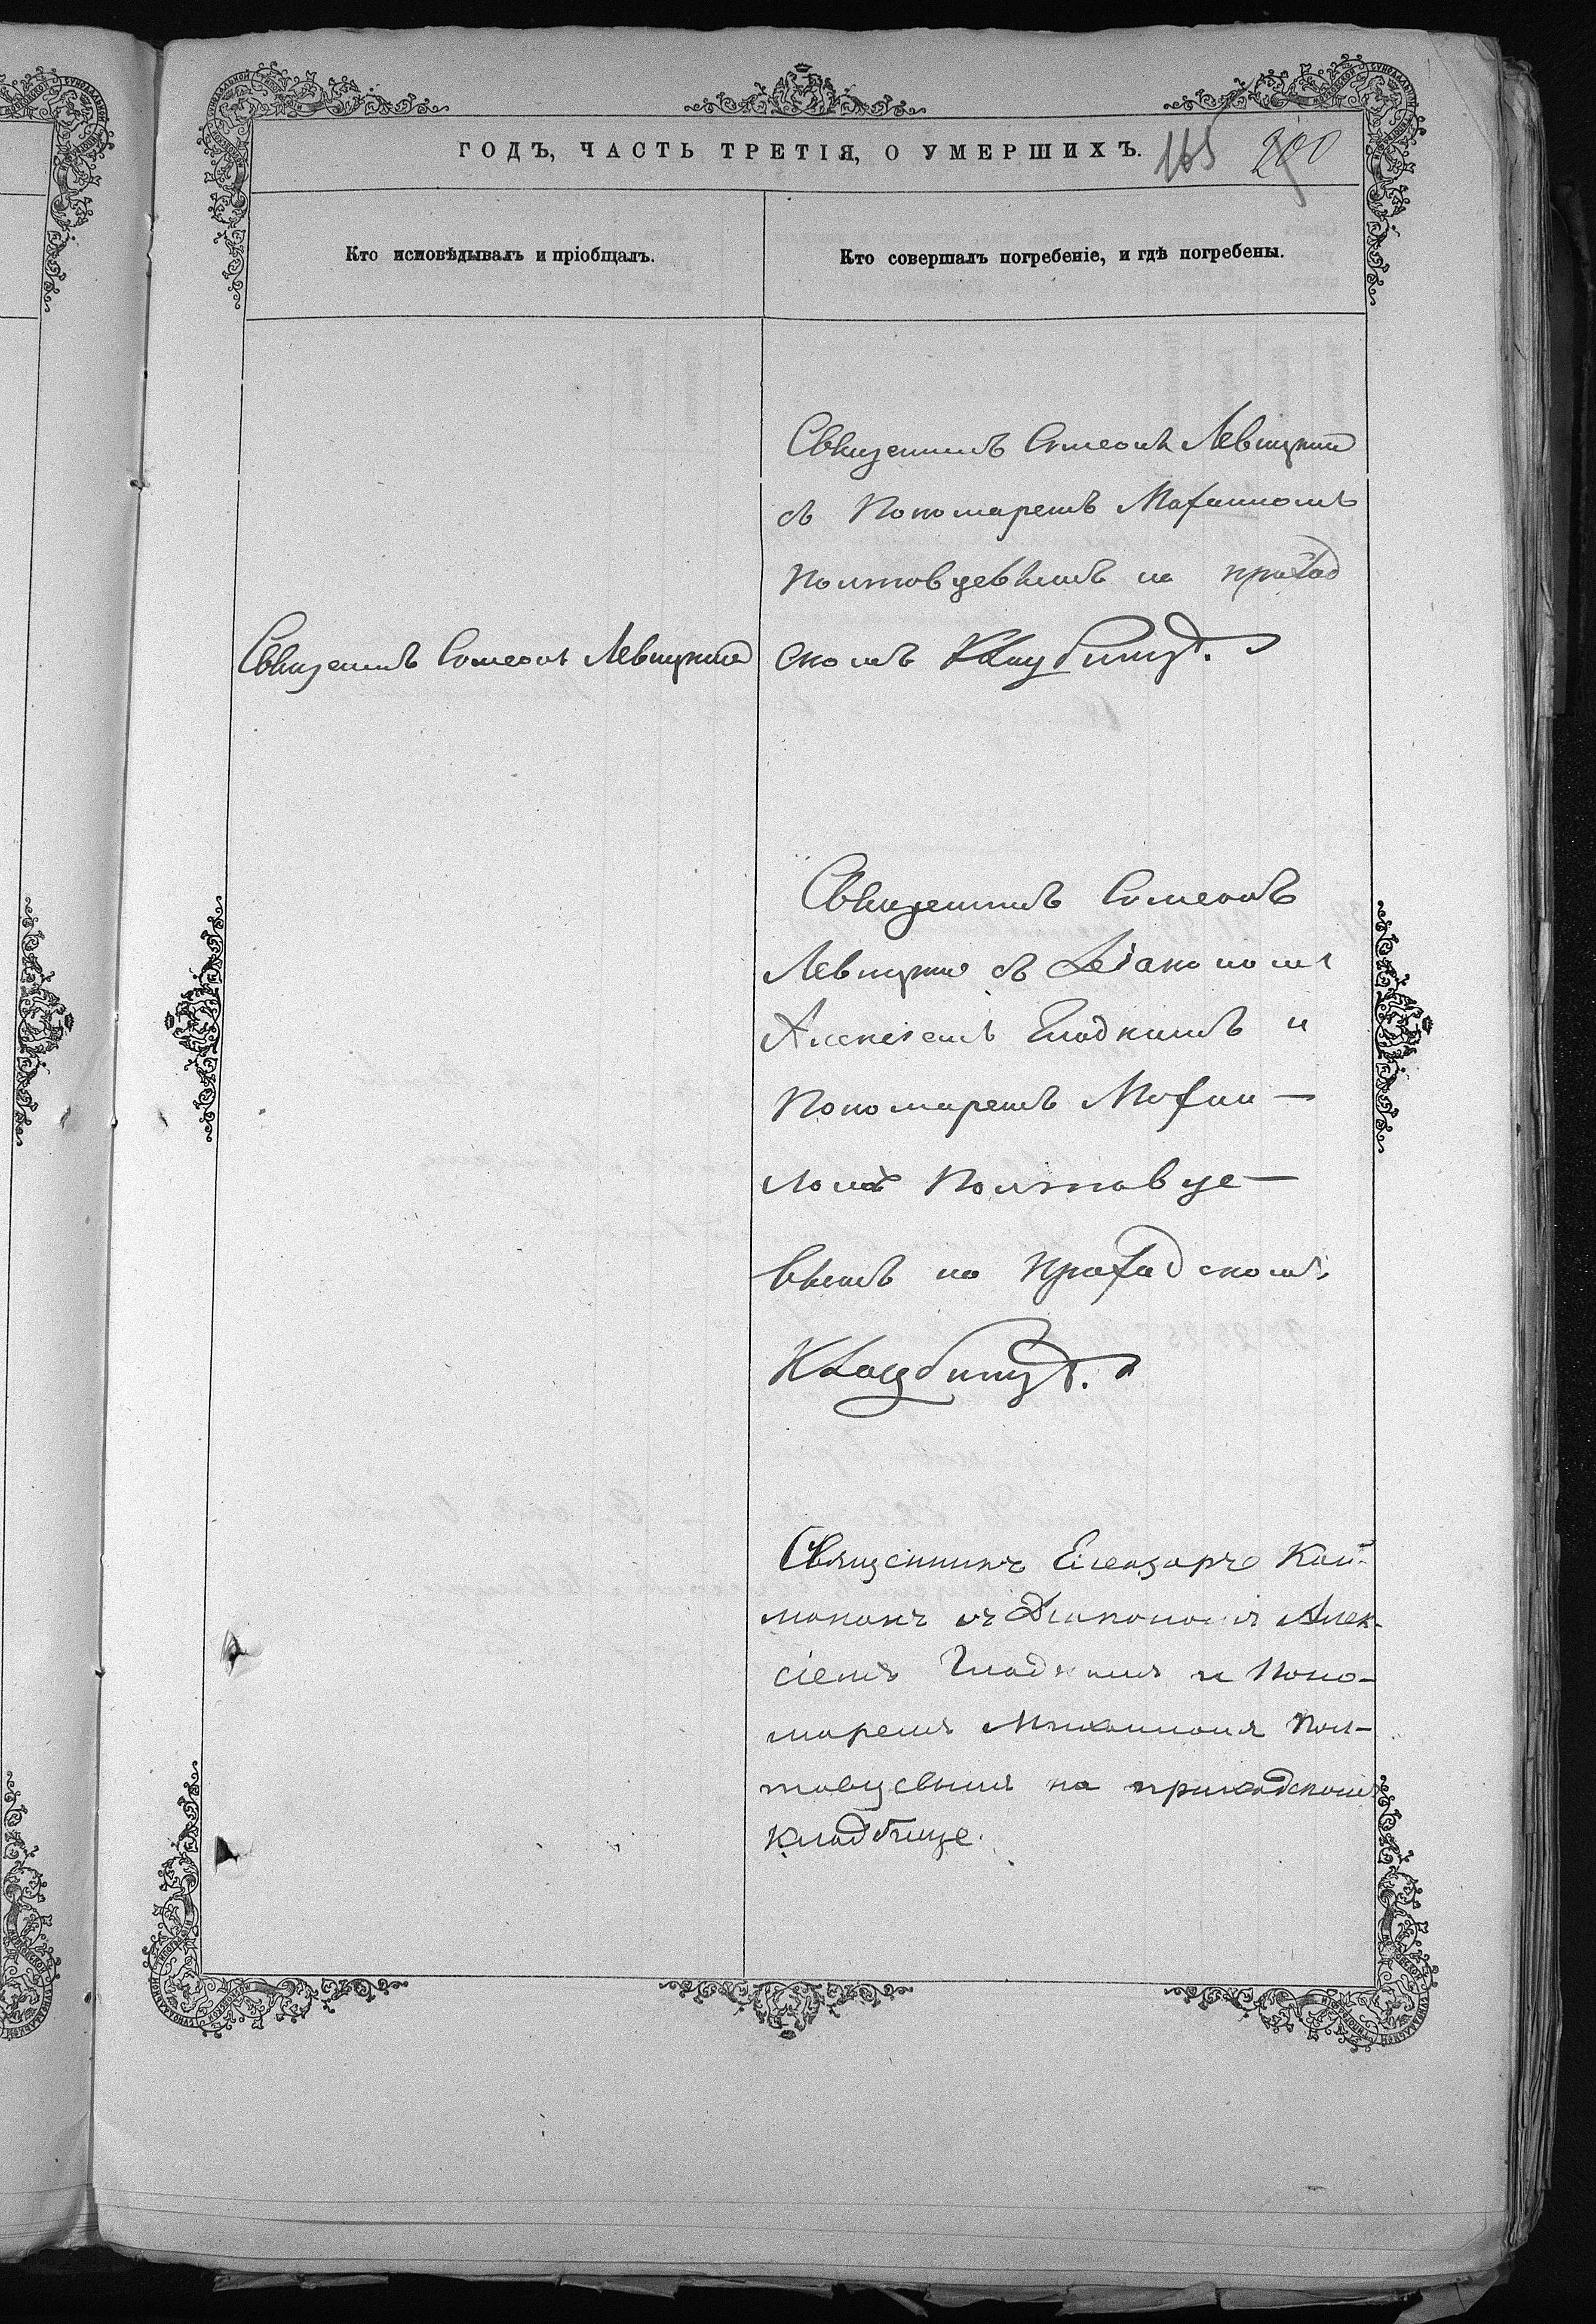 ГОДЪ, ЧАСТЬ ТРЕТІЯ, О УМЕРШИХЪ.
165 200
Кто исповѣдывалъ и пріобщалъ.
Кто совершалъ погребеніе, и гдѣ погребены.
Священникъ Симеонъ Левицкій
Священникъ Симеонъ Левицкій
съ Пономаремъ Михаиломъ
Полтовцевымъ на приход
скомъ Кладбищѣ.
Священникъ Симеонъ
Левицкій съ Діакономъ
Алексіемъ Гладкимъ и
Пономаремъ Михаи-
ломъ Полтовце-
вымъ на приходскомъ
Кладбищѣ.
Священникъ Елеазаръ Кай-
манакъ съ Діакономъ Алек-
сіемъ Гладкимъ и Поно-
маремъ Михаиломъ Пол-
товцевымъ на приходскомъ
кладбище.